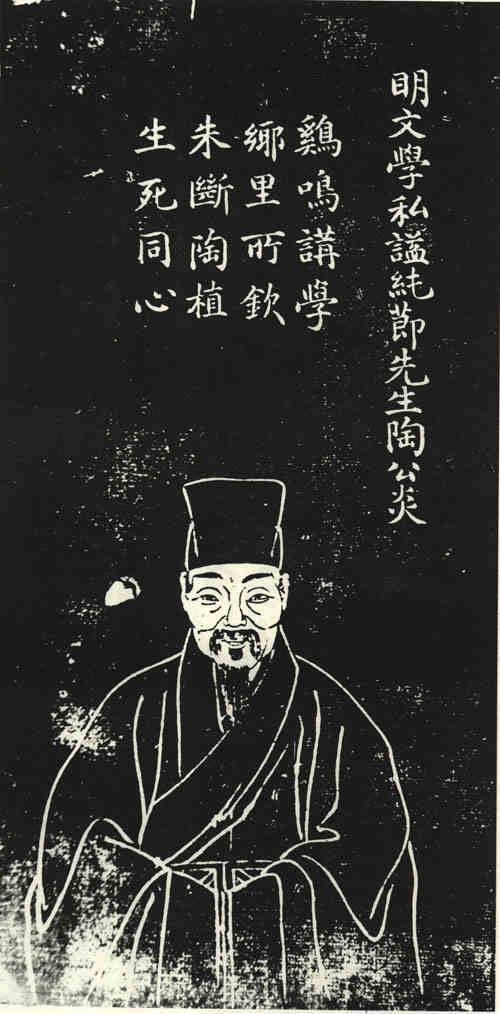 明文學私謚純莭先生陶公炎
鷄鳴講學
鄉里所欽
朱斷陶植
生死同心